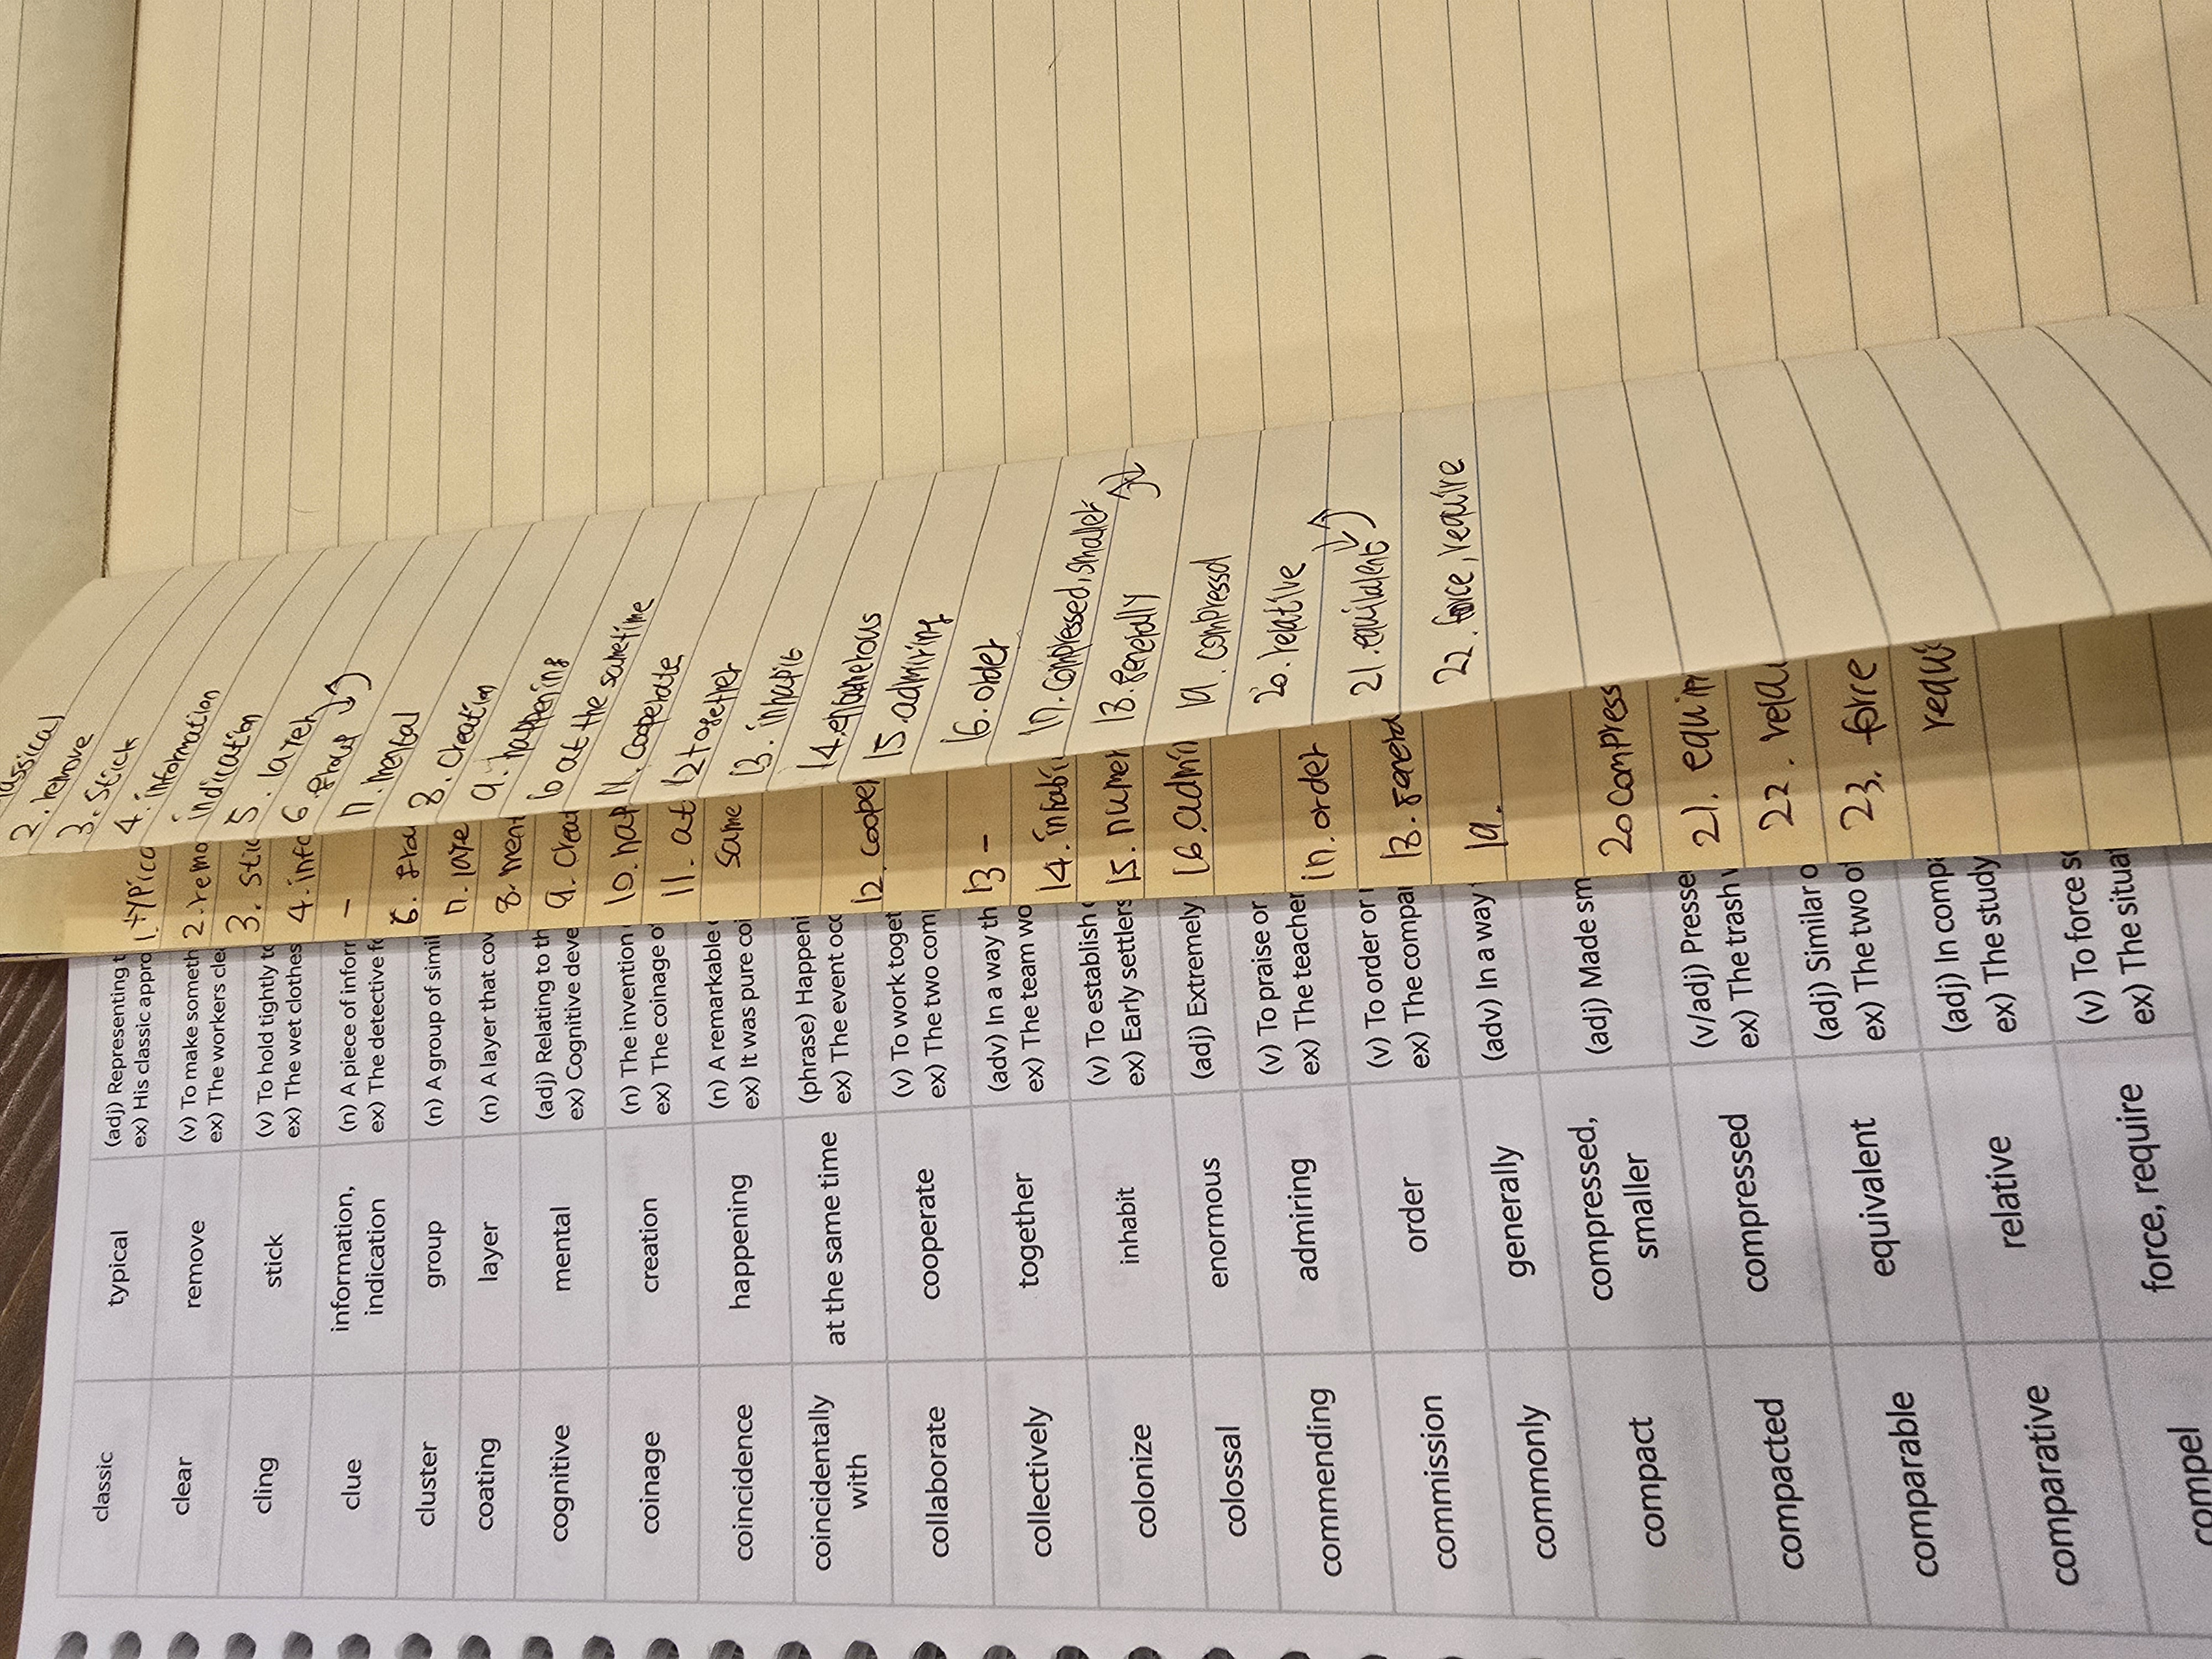 classic
typical
(adj) Representing t
ex) His classic appro
clear
remove
(v) To make someth
ex) The workers clea
cling
stick
(v) To hold tightly to
ex) The wet clothes
clue
information,
indication
(n) A piece of inforr
ex) The detective fo
cluster
group
(n) A group of simil
coating
layer
(n) A layer that cov
cognitive
mental
(adj) Relating to th
ex) Cognitive deve
coinage
creation
(n) The invention
ex) The coinage o
coincidence
happening
(n) A remarkable
ex) It was pure coi
coincidentally
with
at the same time
(phrase) Happeni
ex) The event occ
collaborate
cooperate
(v) To work toget
ex) The two comp
collectively
together
(adv) In a way th
ex) The team wo
colonize
inhabit
(v) To establish
ex) Early settlers
colossal
enormous
(adj) Extremely
commending
admiring
(v) To praise or
ex) The teacher
commission
order
(v) To order or
ex) The compa
commonly
generally
(adv) In a way
compact
compressed,
smaller
(adj) Made sm
compacted
compressed
(v/adj) Presse
ex) The trash
comparable
equivalent
(adj) Similar o
ex) The two of
comparative
relative
(adj) In comp
ex) The study
compel
force, require
(v) To force s
ex) The situat
1. typica
2. remo
3. stic
4. info
-
6. grou
7. laye
8. ment
9. creat
10. hap
11. at
same
12. cooper
13 -
14. inhabi
15. numer
16. admir
17. order
18. general
19.
20 compress
21. equiv
22. rela
23. force
requi
assical
2. remove
3. stick
4. information
indication
5. layer
6. group
7. mental
8. creation
9. happening
10 at the sametime
11. cooperate
12 together
13. inhapit
15. admiring
16. order
17. compressed, smaller
18. generally
19. compressd
20. relative
21. equivalent
22. force, require